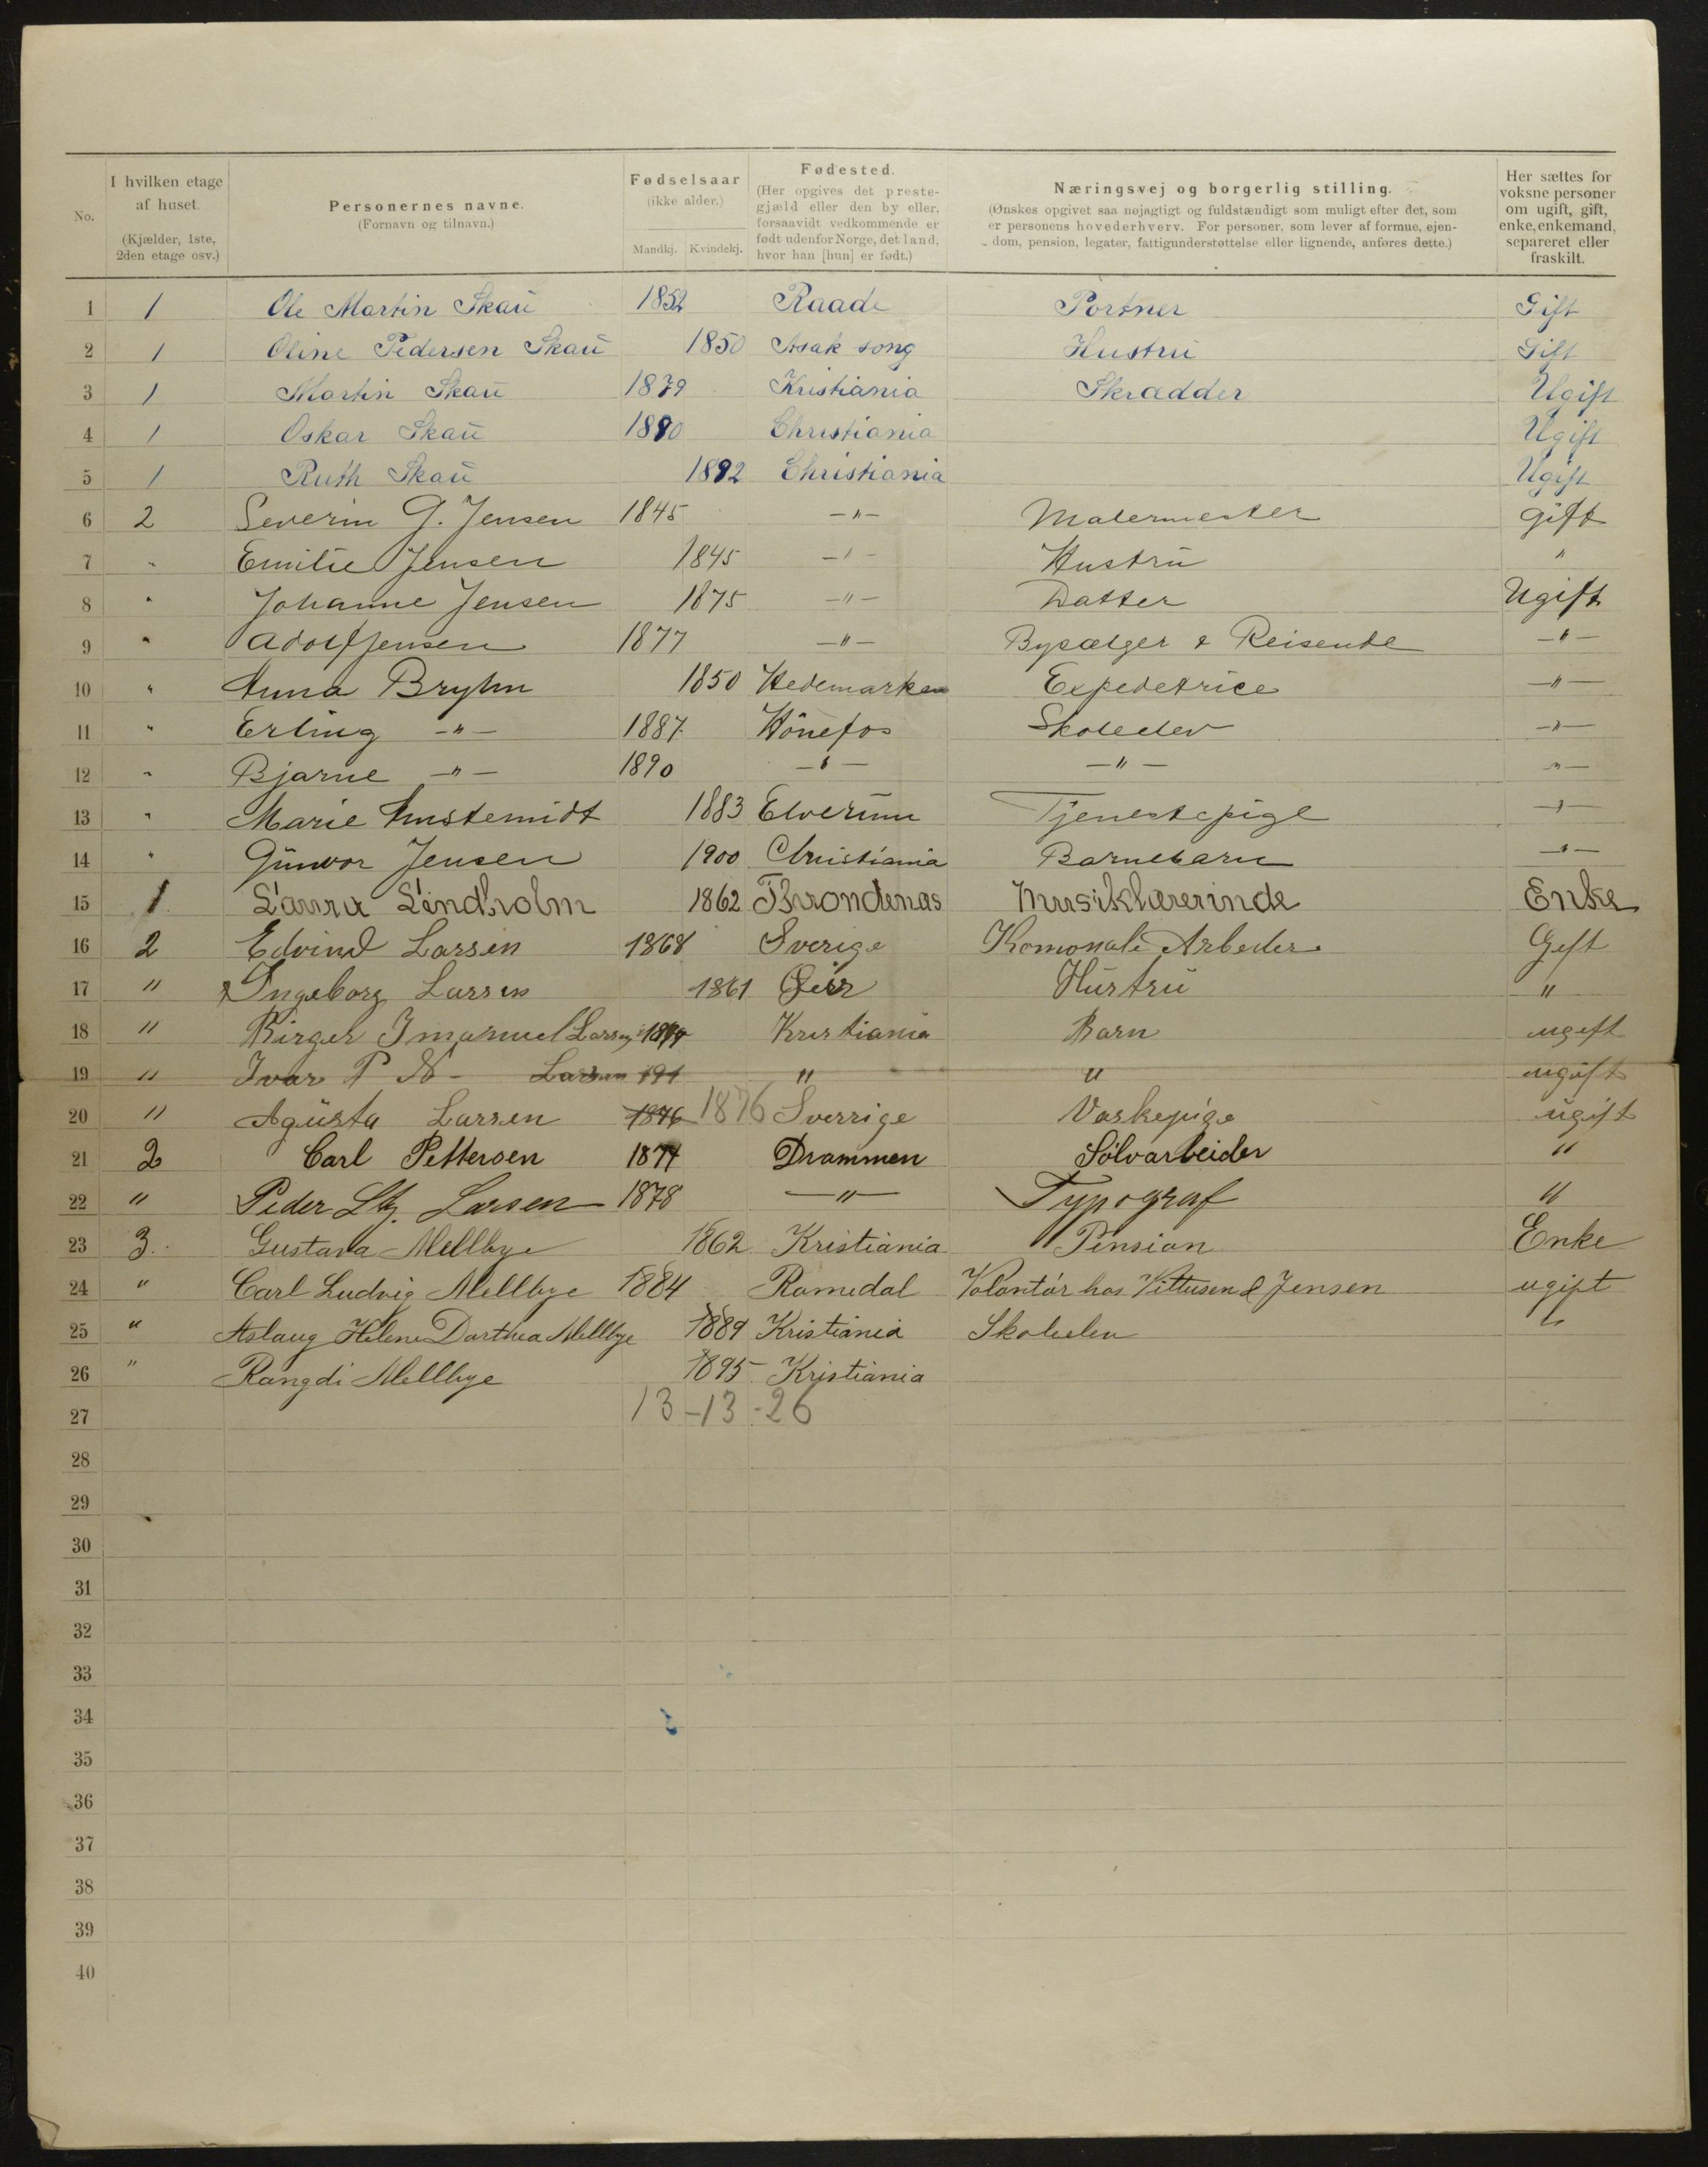 No.	I hvilken etage af huset. (Kjælder, 1ste, 2den etage osv.)	Personernes navne. (Fornavn og tilnavn.)	Fødselsaar (ikke alder.) Mandkj. Kvindekj.	Fødested. (Her opgives det prestegjæld eller den by eller, forsaavidt vedkommende er født udenfor Norge, det land, hvor han [hun] er født.)	Næringsvej og borgerlig stilling. (Ønskes opgivet saa nøjagtigt og fuldstændigt som muligt efter det, som er personens hovederhverv. For personer, som lever af formue, ejendom, pension, legater, fattigunderstøttelse eller lignende, anføres dette.)	Her sættes for voksne personer om ugift, gift, enke, enkemand, separeret eller fraskilt.
1 1 Ole Martin Skaü 1852 Raade Portner Gift
2 1 Oline Pedersen Skaü 1850 Asak song Hustrü Gift
3 1 Martin Skaü 1879 Kristiania Skrædder Ugift
4 1 Oskar Skaü 1890 Christiania Ugift
5 1 Ruth Skaü 1892 Christiania Ugift
6 2 Severin G. Jensen 1845 -"- Malermester gift
7 " Emilie Jensen 1845 -"- Hustrü "
8 " Johanne Jensen 1875 -"- Datter Ugift
9 " Adolf Jensen 1877 -"- Bysælger & Reisende -"-
10 " Anna Bryhn 1850 Hedemarken Expeditrice -"-
11 " Erling -"- 1887 Hönefos Skoleelev -"-
12 " Bjarne -"- 1890 -"- -"- -"-
13 " Marie 1883 Elverüm Tjenestepige -"-
14 " Günvor Jensen 1900 Christiania Barnebarn -"-
15 1 Laura Lindholm 1862 Throndenas Musiklærerinde Enke
16 2 Edvind Larsen 1868 Sverige Komonale Arbeder Geft
17 " Ingeborg Larsen 1861 Hüstrü "
18 " Birger Imanuel Larsen Kristiania Barn ugeft
19 " Ivar P N - Larsen 191 " " ugift
20 " Agüsta Larsen 1876 1876 Sverrige Vaskepige ugift
21 2 Carl Pettersen 1877 Drammen Sølvarbeider "
22 " Peder Larsen 1878 -"- Typograf "
23 3. Gustava Mellbye 1862 Kristiania Pension Enke
24 " Carl Ludvig Mellbye 1884 Romedal Volontör hos Vittusen & Jensen ugift
25 " Aslaug Helene Dorthea Mellbye 1889 Kristiania Skoleelev "
26 " Rangdi Mellbye 1895 Kristiania
27 13-13-26
28
29
30
31
32
33
34
35
36
37
38
39
40